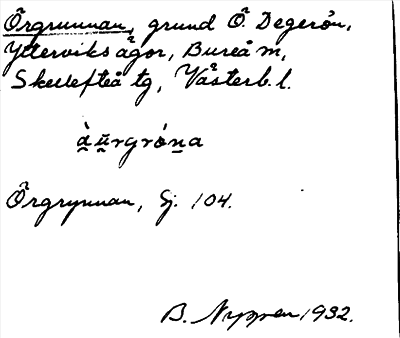 Örgrunnan, grund Ö Degerön,
Ytterviks ägor, Bureå sn,
Skellefteå tg, Västerb. l.
à̱ṵrgróṉa
Örgrynnan, Sj. 104.
B. Nyppen 1932.